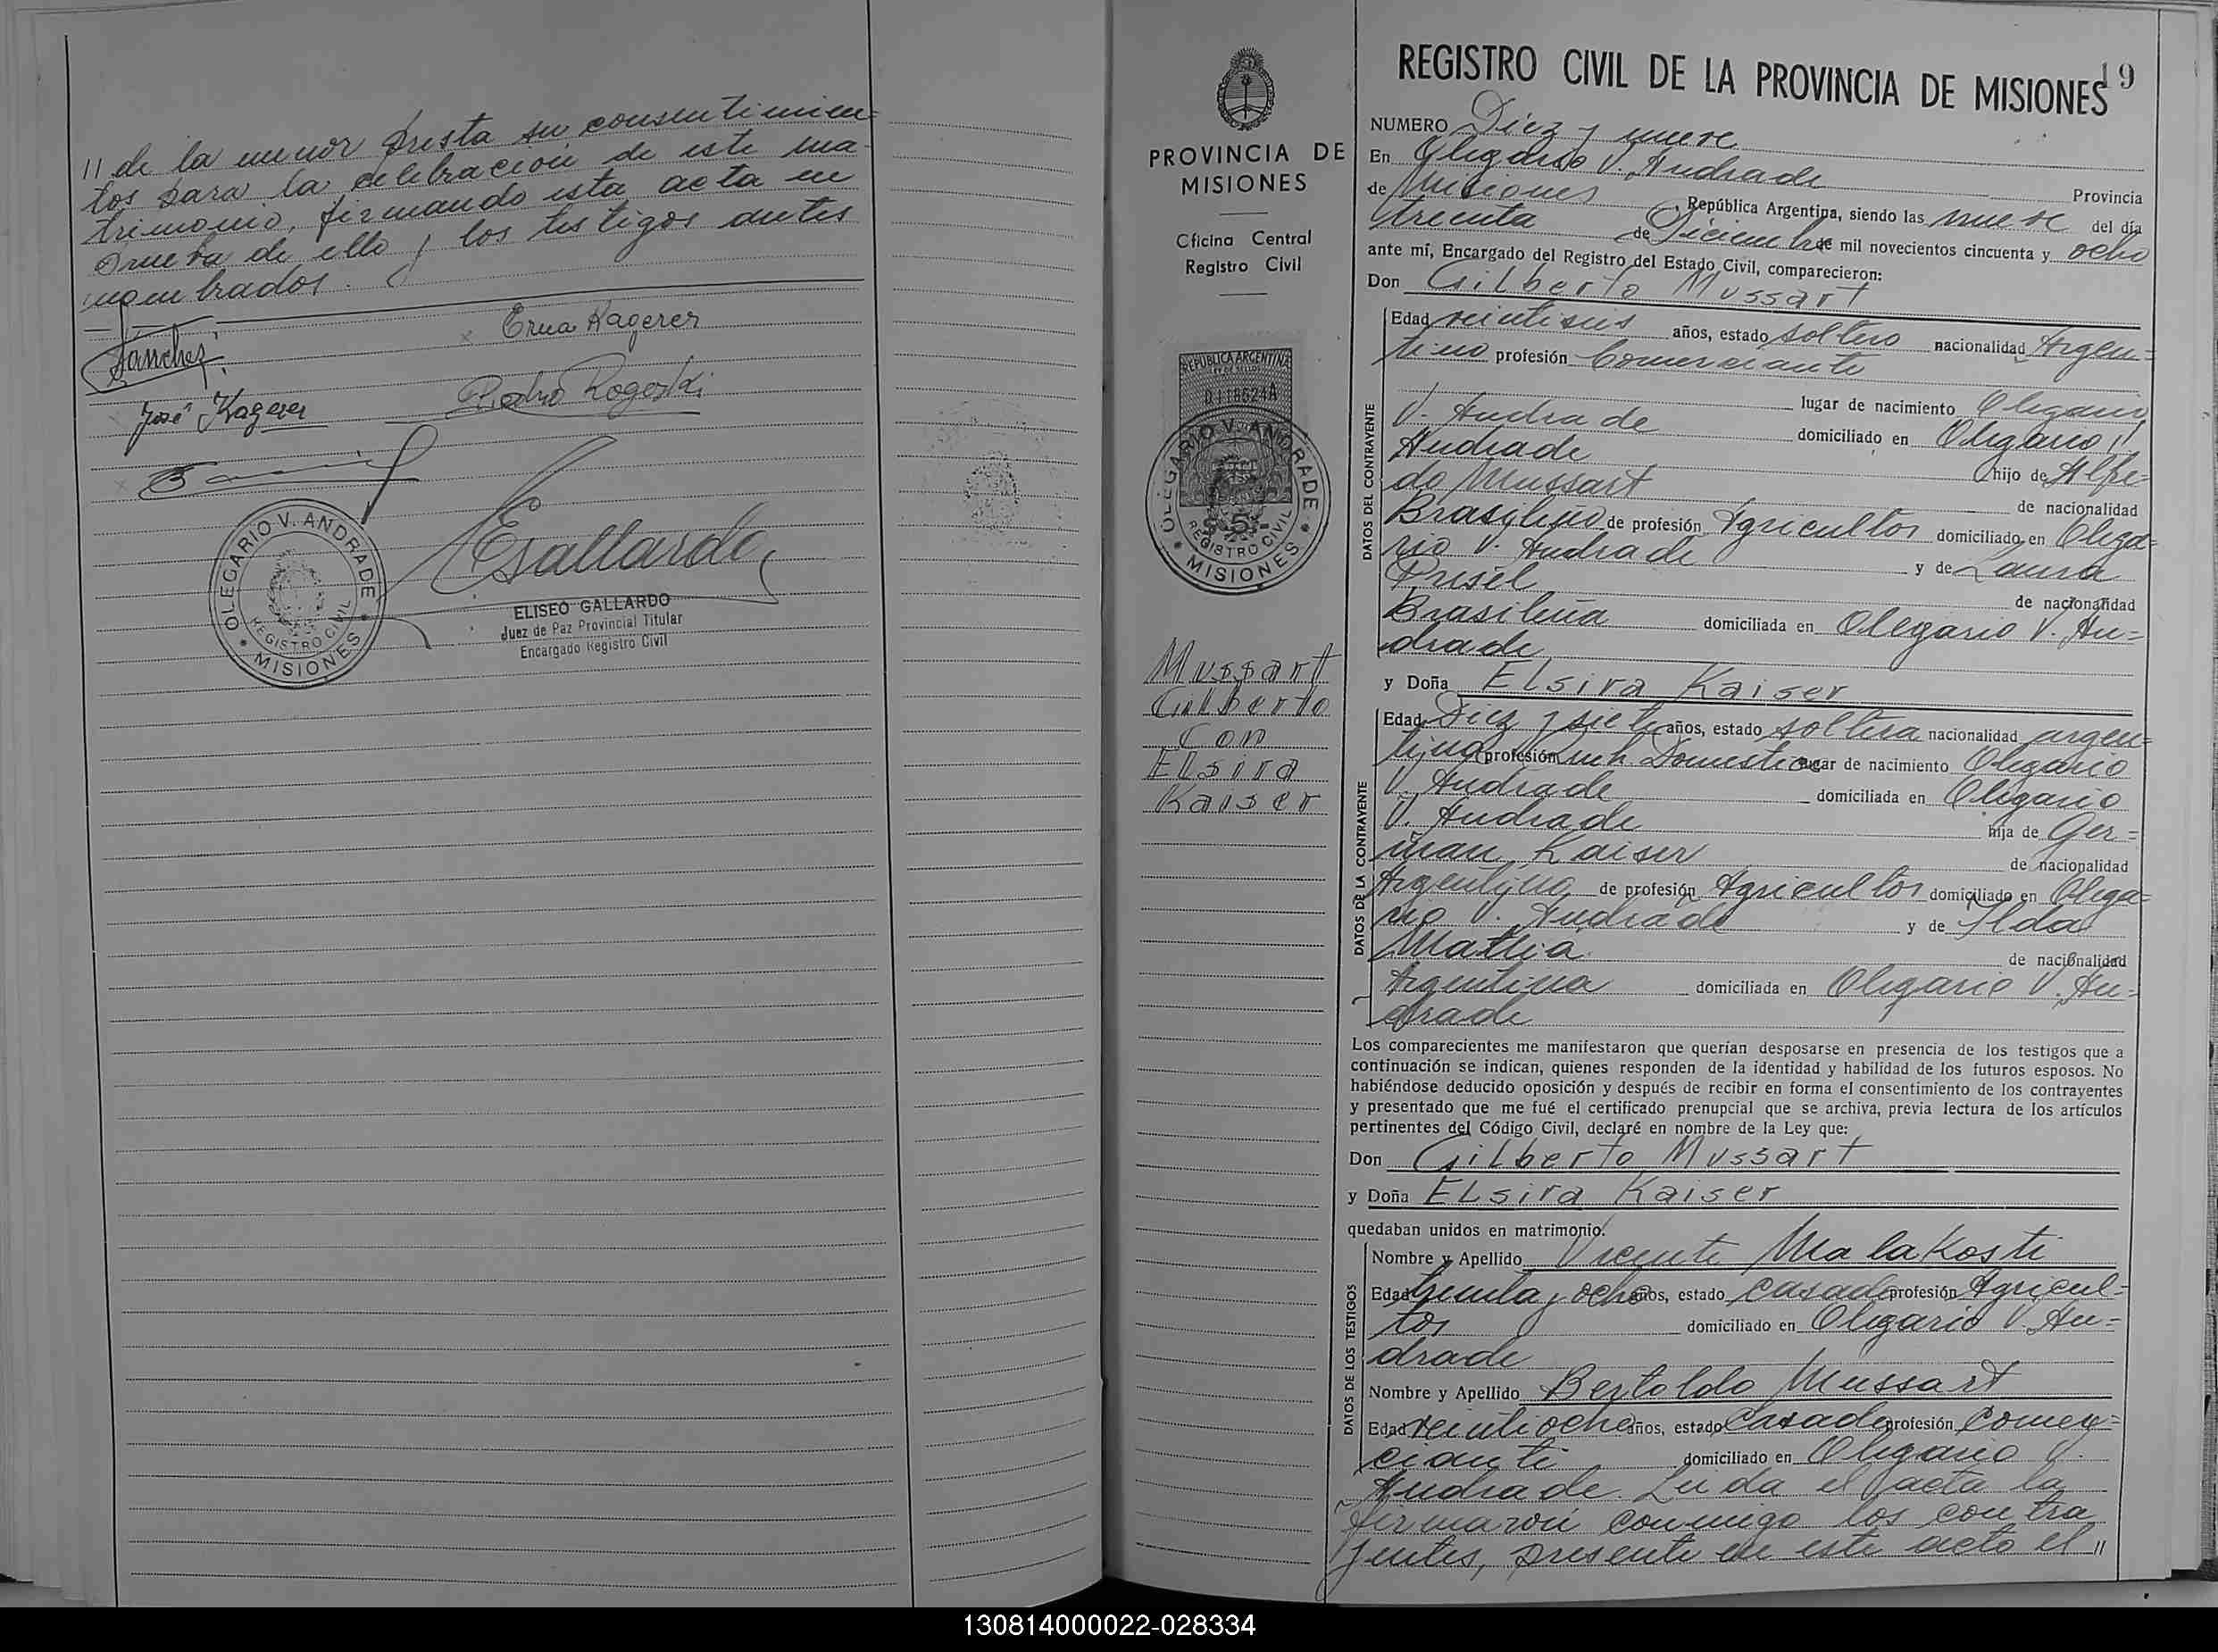 // de la menor presta su consentimien-
tos para la celebración de este ma-
trimonio, firmando esta acta en
prueba de ello y los testigos antes
nombrados.
Sanchez
Erna Kagerer
José Kagerer
Pedro Rogoski
OLEGARIO V. ANDRADE
REGISTRO CIVIL
* MISIONES *
EGallardo
ELISEO GALLARDO
Juez de Paz Provincial Titular
Encargado Registro Civil
PROVINCIA DE
MISIONES
Oficina Central
Registro Civil
REPUBLICA ARGENTINA
OLEGARIO V. ANDRADE
REGISTRO CIVIL
* MISIONES *
Mussart
Gilberto
con
Elsira
Kaiser
REGISTRO CIVIL DE LA PROVINCIA DE MISIONES
19
NUMERO Diez y nueve
En Olegario V. Andrade Provincia
de Misiones República Argentina, siendo las nueve del día
treinta de Diciembre de mil novecientos cincuenta y ocho
ante mí, Encargado del Registro del Estado Civil, comparecieron:
Don Gilberto Mussart
DATOS DEL CONTRAYENTE
Edad veintiseis años, estado soltero nacionalidad Argen-
tino profesión Comerciante
lugar de nacimiento Olegario
V. Andrade domiciliado en Olegario V.
Andrade hijo de Alfre-
do Mussart de nacionalidad
Brasilero de profesión Agricultor domiciliado en Olega-
rio V. Andrade y de Laura
Prisel de nacionalidad
Brasileña domiciliada en Olegario V. An=
drade
y Doña Elsira Kaiser
DATOS DE LA CONTRAYENTE
Edad Diez y siete años, estado soltera nacionalidad argen=
tina profesión Domestica lugar de nacimiento Olegario
V. Andrade domiciliada en Olegario
V. Andrade hija de Ger=
man Kaiser de nacionalidad
Argentino de profesión Agricultor domiciliado en Olega=
rio V. Andrade y de Ilda
de nacionalidad
Argentina domiciliada en Olegario V. An=
drade
Los comparecientes me manifestaron que querían desposarse en presencia de los testigos que a
continuación se indican, quienes responden de la identidad y habilidad de los futuros esposos. No
habiéndose deducido oposición y después de recibir en forma el consentimiento de los contrayentes
y presentado que me fué el certificado prenupcial que se archiva, previa lectura de los artículos
pertinentes del Código Civil, declaré en nombre de la Ley que:
Don Gilberto Mussart
y Doña Elsira Kaiser
quedaban unidos en matrimonio.
DATOS DE LOS TESTIGOS
Nombre y Apellido Vicente Malakosti
Edad treinta y ocho años, estado casado profesión Agricul=
tor domiciliado en Olegario V. An=
drade
Nombre y Apellido Bertoldo Mussart
Edad veintiocho años, estado Casado profesión Comer=
ciante domiciliado en Olegario V.
Andrade Leida el acta la
firmaron conmigo los contra
yentes, presente en este acto el //
130814000022-028334